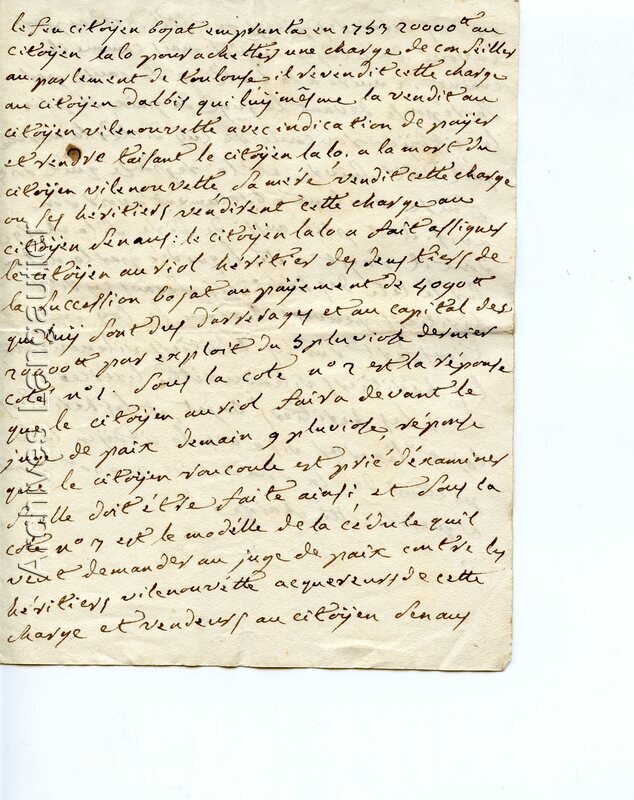 le feu citoyen bojat emprunta en 1753 20000tt au
citoyen lalo pour achetter une charge de conseiller
au parlement de toulouse il revendit cette charge
au citoyen dalbis qui luÿ même la vendit au
citoyen vilenouvette avec indication de payer
et rendre taisant le citoyen lalo. a la mort du
citoyen vilenouvette sa mére vendit cette charge
ou ses héritiers vendirent cette charge au
citoyen senaus : le citoyen lalo a fait assigner
le citoyen auriol héritier des deus tiers de
la succession bojat au payement de 4090tt
qui luÿ sont dus d'arrerages et au capital des
20000tt par exploit du 5 pluviose dernier
coté n° 1. sous la cote n° 2 est la réponse
que le citoyen auriol faira devant le
juge de paix demain 9 pluviose, réponse
que le citoyen roucoule est prié d'éxaminer
si elle doit être faite ainsi et sous la
cote n° 3 est le modélle de la cédule quil
veut demander au juge de paix contre les
héritiers vilenouvétte acquereurs de cette
charge et vendeurs au citoyen senaus
Archives Langautier